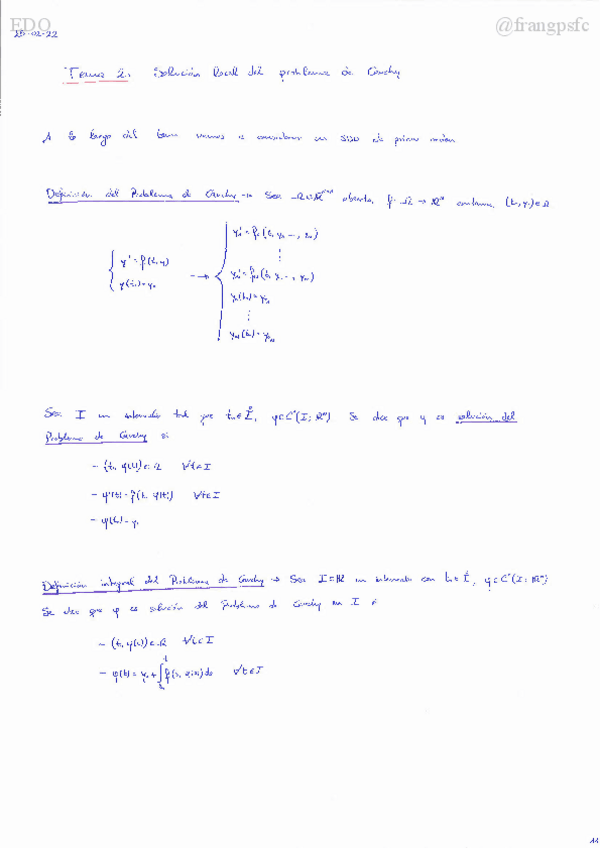 EDO @frangpsfc
25-02-22
Tema 2: Solución local del problema de Cauchy
A lo largo del tema vamos a considerar un SDO de primer orden
Definición del Problema de Cauchy → Sea Ω⊂ℝⁿ⁺¹ abierto, f: Ω → ℝⁿ continua, (t₀, y₀) ∈ Ω
{ y' = f(t, y)
y(t₀) = y₀
→ { y₁' = f₁(t, y₁, ..., yₙ)
⋮
yₙ' = fₙ(t, y₁, ..., yₙ)
y₁(t₀) = y₀₁
⋮
yₙ(t₀) = y₀ₙ
Sea I un intervalo tal que t₀ ∈ I̊, φ ∈ C¹(I; ℝⁿ) Se dice que φ es solución del
Problema de Cauchy si
- (t, φ(t)) ∈ Ω ∀t ∈ I
- φ'(t) = f(t, φ(t)) ∀t ∈ I
- φ(t₀) = y₀
Definición integral del Problema de Cauchy → Sea I⊂ℝ un intervalo con t₀ ∈ I̊, φ ∈ C⁰(I; ℝⁿ)
Se dice que φ es solución del Problema de Cauchy en I si
- (t, φ(t)) ∈ Ω ∀t ∈ I
- φ(t) = y₀ + ∫ₜ₀ᵗ f(s, φ(s)) ds ∀t ∈ I
11